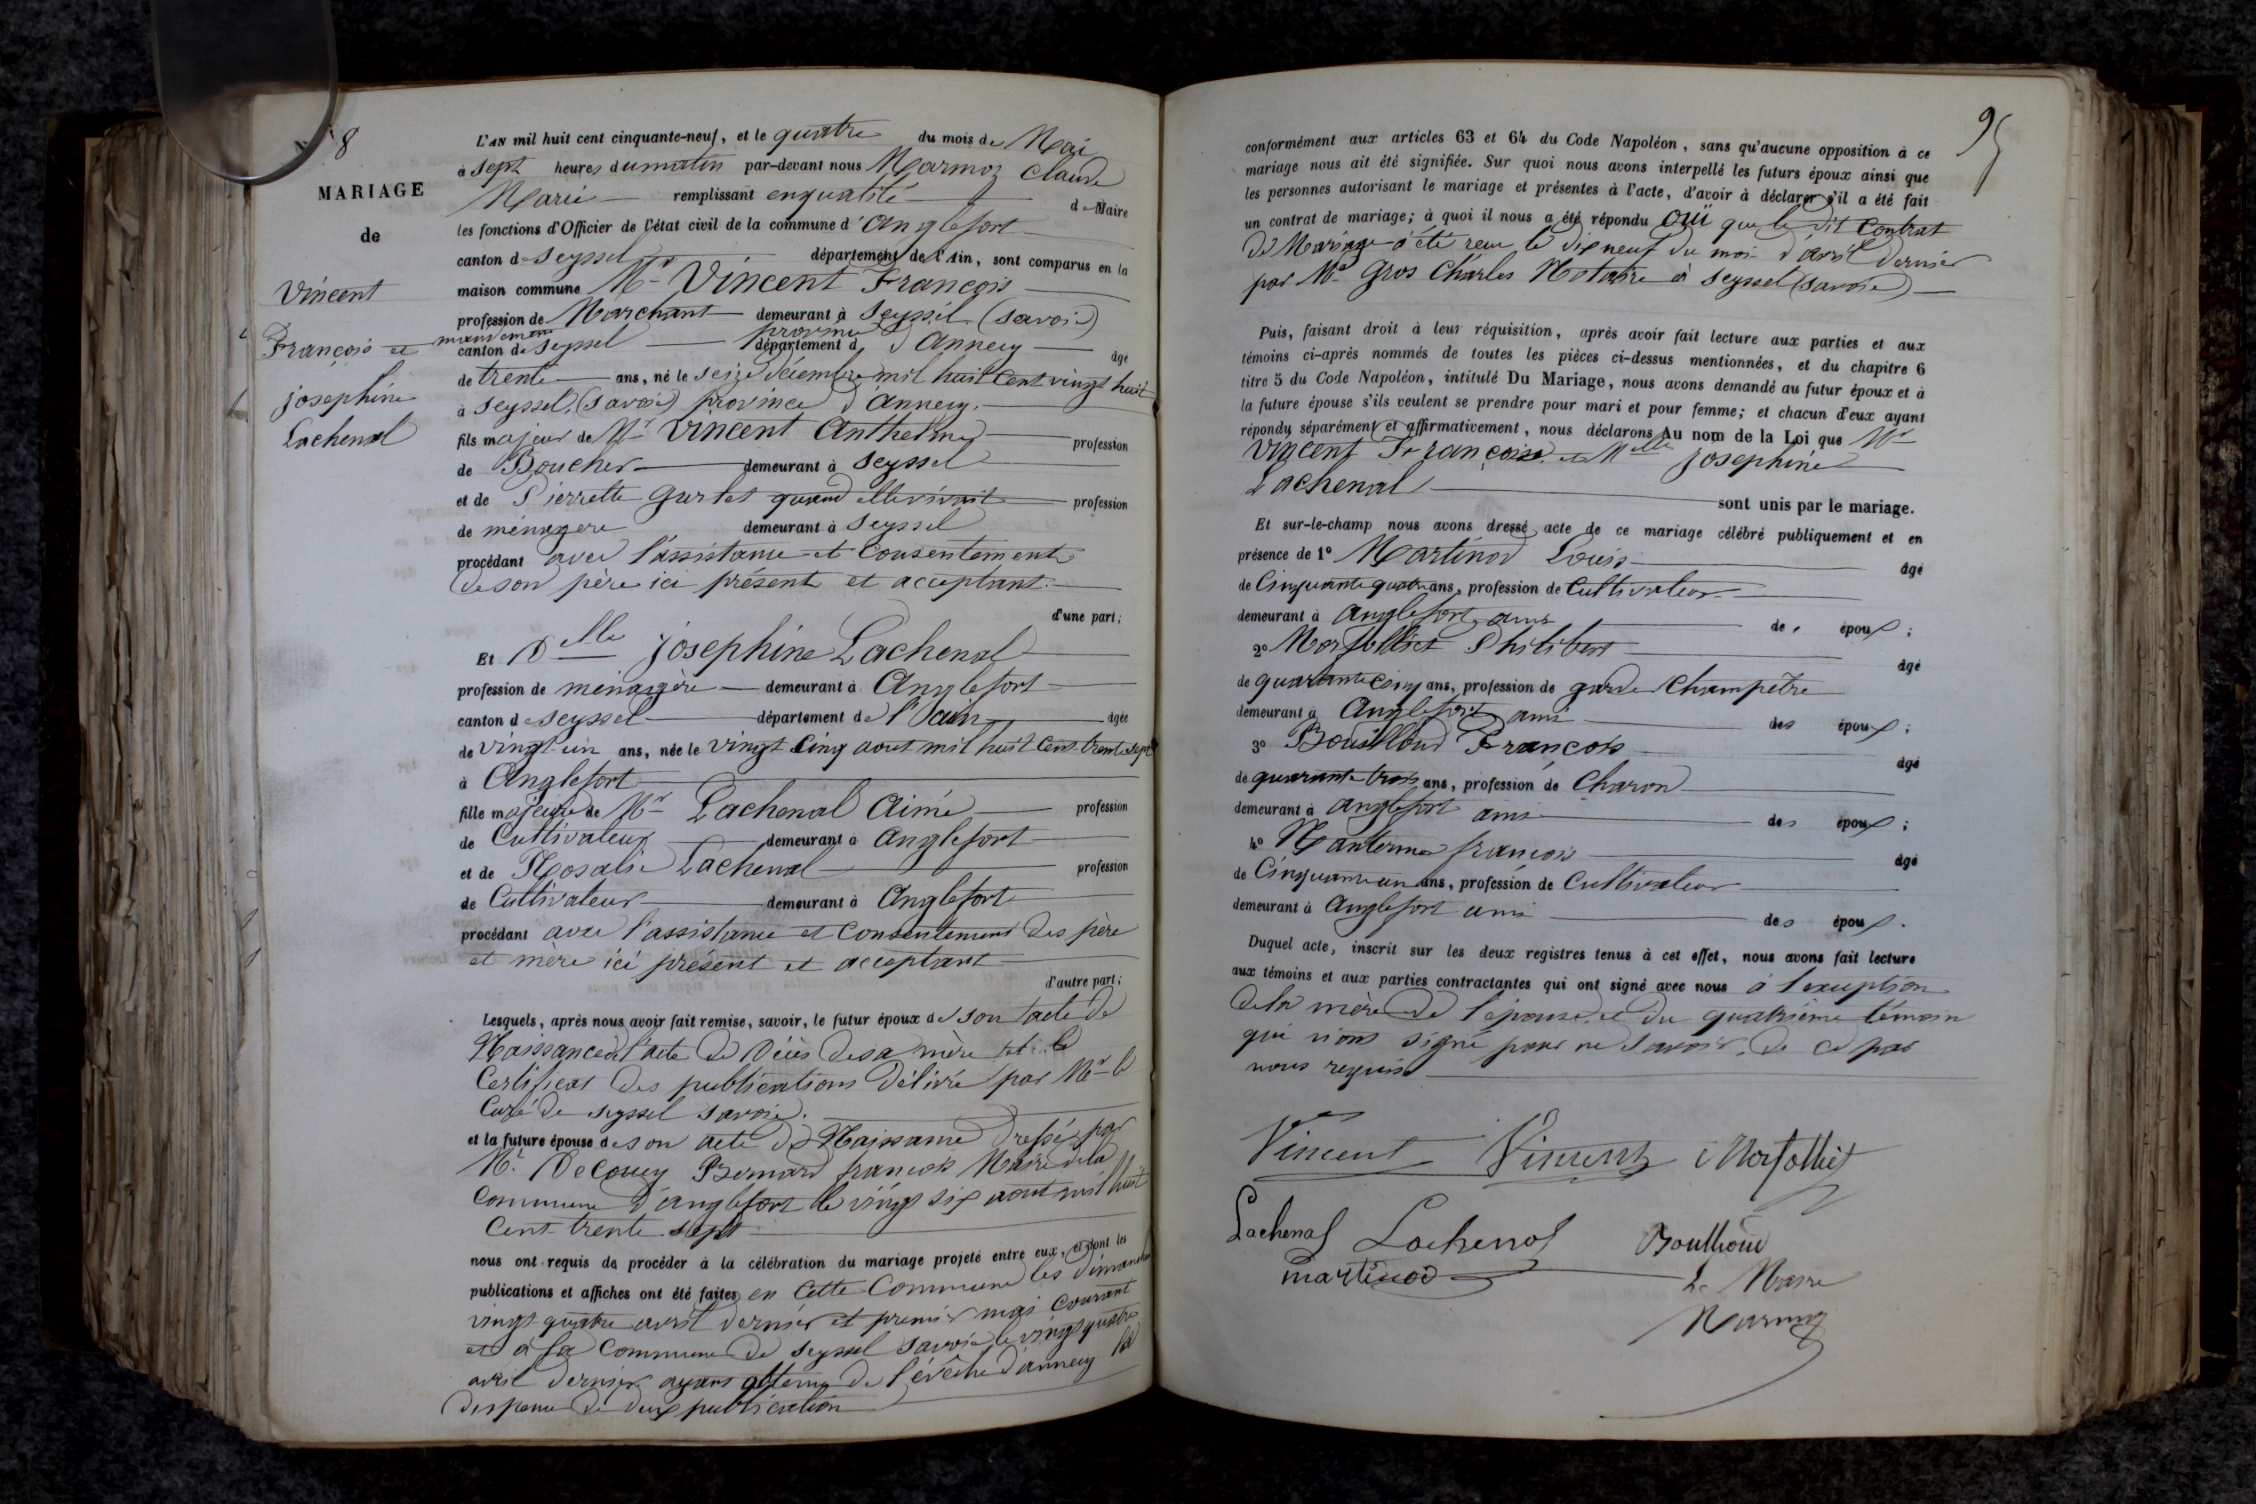 8
MARIAGE
de
Vincent
François et
joséphine
Lachenal
L'AN mil huit cent cinquante-neuf, et le quatre du mois de Mai
à sept heures du matin par-devant nous Marmoz Claude
Marie remplissant en qualité de Maire
les fonctions d'Officier de l'état civil de la commune d'Anglefort
canton de Seyssel département de l'Ain, sont comparus en la
maison commune Mr Vincent François
profession de Marchant demeurant à Seyssel (Savoie)
mandement province
canton de Seyssel département d d'Annecy âgé
de trente ans, né le seize décembre mil huit cent vingt huit
à Seyssel (Savoie) province d'Annecy.
fils majeur de Mr Vincent Anthelme profession
de Boucher demeurant à Seyssel
et de Pierrette Gurlet quand elle vivait profession
de ménagère demeurant à Seyssel
procédant avec l'assistance et consentement
de son père ici présent et acceptant.
d'une part;
Et Delle joséphine Lachenal
profession de ménagère demeurant à Anglefort
canton de Seyssel département de l'ain âgée
de vingt-un ans, née le vingt cinq aout mil huit cent trente sept
à Anglefort
fille majeure de Mr Lachenal Aimé profession
de Cultivateur demeurant à Anglefort
et de Rosalie Lachenal profession
de Cultivateur demeurant à Anglefort
procédant avec l'assistance et consentement des père
et mère ici présent et acceptant
d'autre part;
Lesquels, après nous avoir fait remise, savoir, le futur époux de son acte de
Naissance de l'acte de Décès de sa mère et le
Certificat des publications délivré par Mr le
Curé de Seyssel Savoie.
et la future épouse de son acte de Naissance dressé par
Mr Decouey Bernard françois Maire de la
Commune d'anglefort le vingt six aout mil huit
Cent trente sept
nous ont requis de procéder à la célébration du mariage projeté entre eux, et dont les
publications et affiches ont été faites en Cette Commune les dimanches
vingt quatre avril dernier et premier mai Courant
et à la Commune de Seyssel Savoie le vingt quatre
avril dernier ayant obtenu de l'évêché d'annecy la
dispense de deux publication
95
conformément aux articles 63 et 64 du Code Napoléon, sans qu'aucune opposition à ce
mariage nous ait été signifiée. Sur quoi nous avons interpellé les futurs époux ainsi que
les personnes autorisant le mariage et présentes à l'acte, d'avoir à déclarer s'il a été fait
un contrat de mariage; à quoi il nous a été répondu OUI que le dit Contrat
de Mariage a été reçu le dix neuf du moi d'avril dernier
par Me Gros Charles Notaire à Seyssel (Savoie)
Puis, faisant droit à leur réquisition, après avoir fait lecture aux parties et aux
témoins ci-après nommés de toutes les pièces ci-dessus mentionnées, et du chapitre 6
titre 5 du Code Napoléon, intitulé Du Mariage, nous avons demandé au futur époux et à
la future épouse s'ils veulent se prendre pour mari et pour femme; et chacun d'eux ayant
répondu séparément et affirmativement, nous déclarons Au nom de la Loi que Mr
Vincent François et Melle joséphine
Lachenal
sont unis par le mariage.
Et sur-le-champ nous avons dressé acte de ce mariage célébré publiquement et en
présence de 1° Martinod Louis âgé
de Cinquante quatre ans, profession de Cultivateur
demeurant à Anglefort ami des époux;
2° Morfolliet Philibert âgé
de quarante cinq ans, profession de garde champêtre
demeurant à Anglefort ami des époux;
3° Bouilloud François âgé
de quarante trois ans, profession de Charon
demeurant à anglefort ami des époux;
4° Nanterme françois âgé
de Cinquante un ans, profession de Cultivateur
demeurant à Anglefort ami des époux.
Duquel acte, inscrit sur les deux registres tenus à cet effet, nous avons fait lecture
aux témoins et aux parties contractantes qui ont signé avec nous à l'exception
de la mère de l'épouse et du quatrième témoin
qui n'ont signé pour ne savoir, de ce par
nous requis
Vincent Vincent Morfolliet
Lachenal Lachenal Bouilloud
martinod
Le Maire
Marmoz